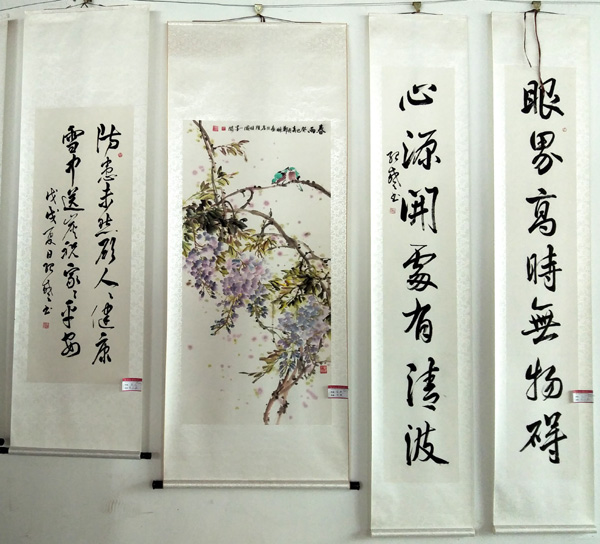 眼界高時無物碍
心源開處有清波
书
春雨
防患未然愿人々健康
雪中送炭祝家々平安
戊戌夏日 书